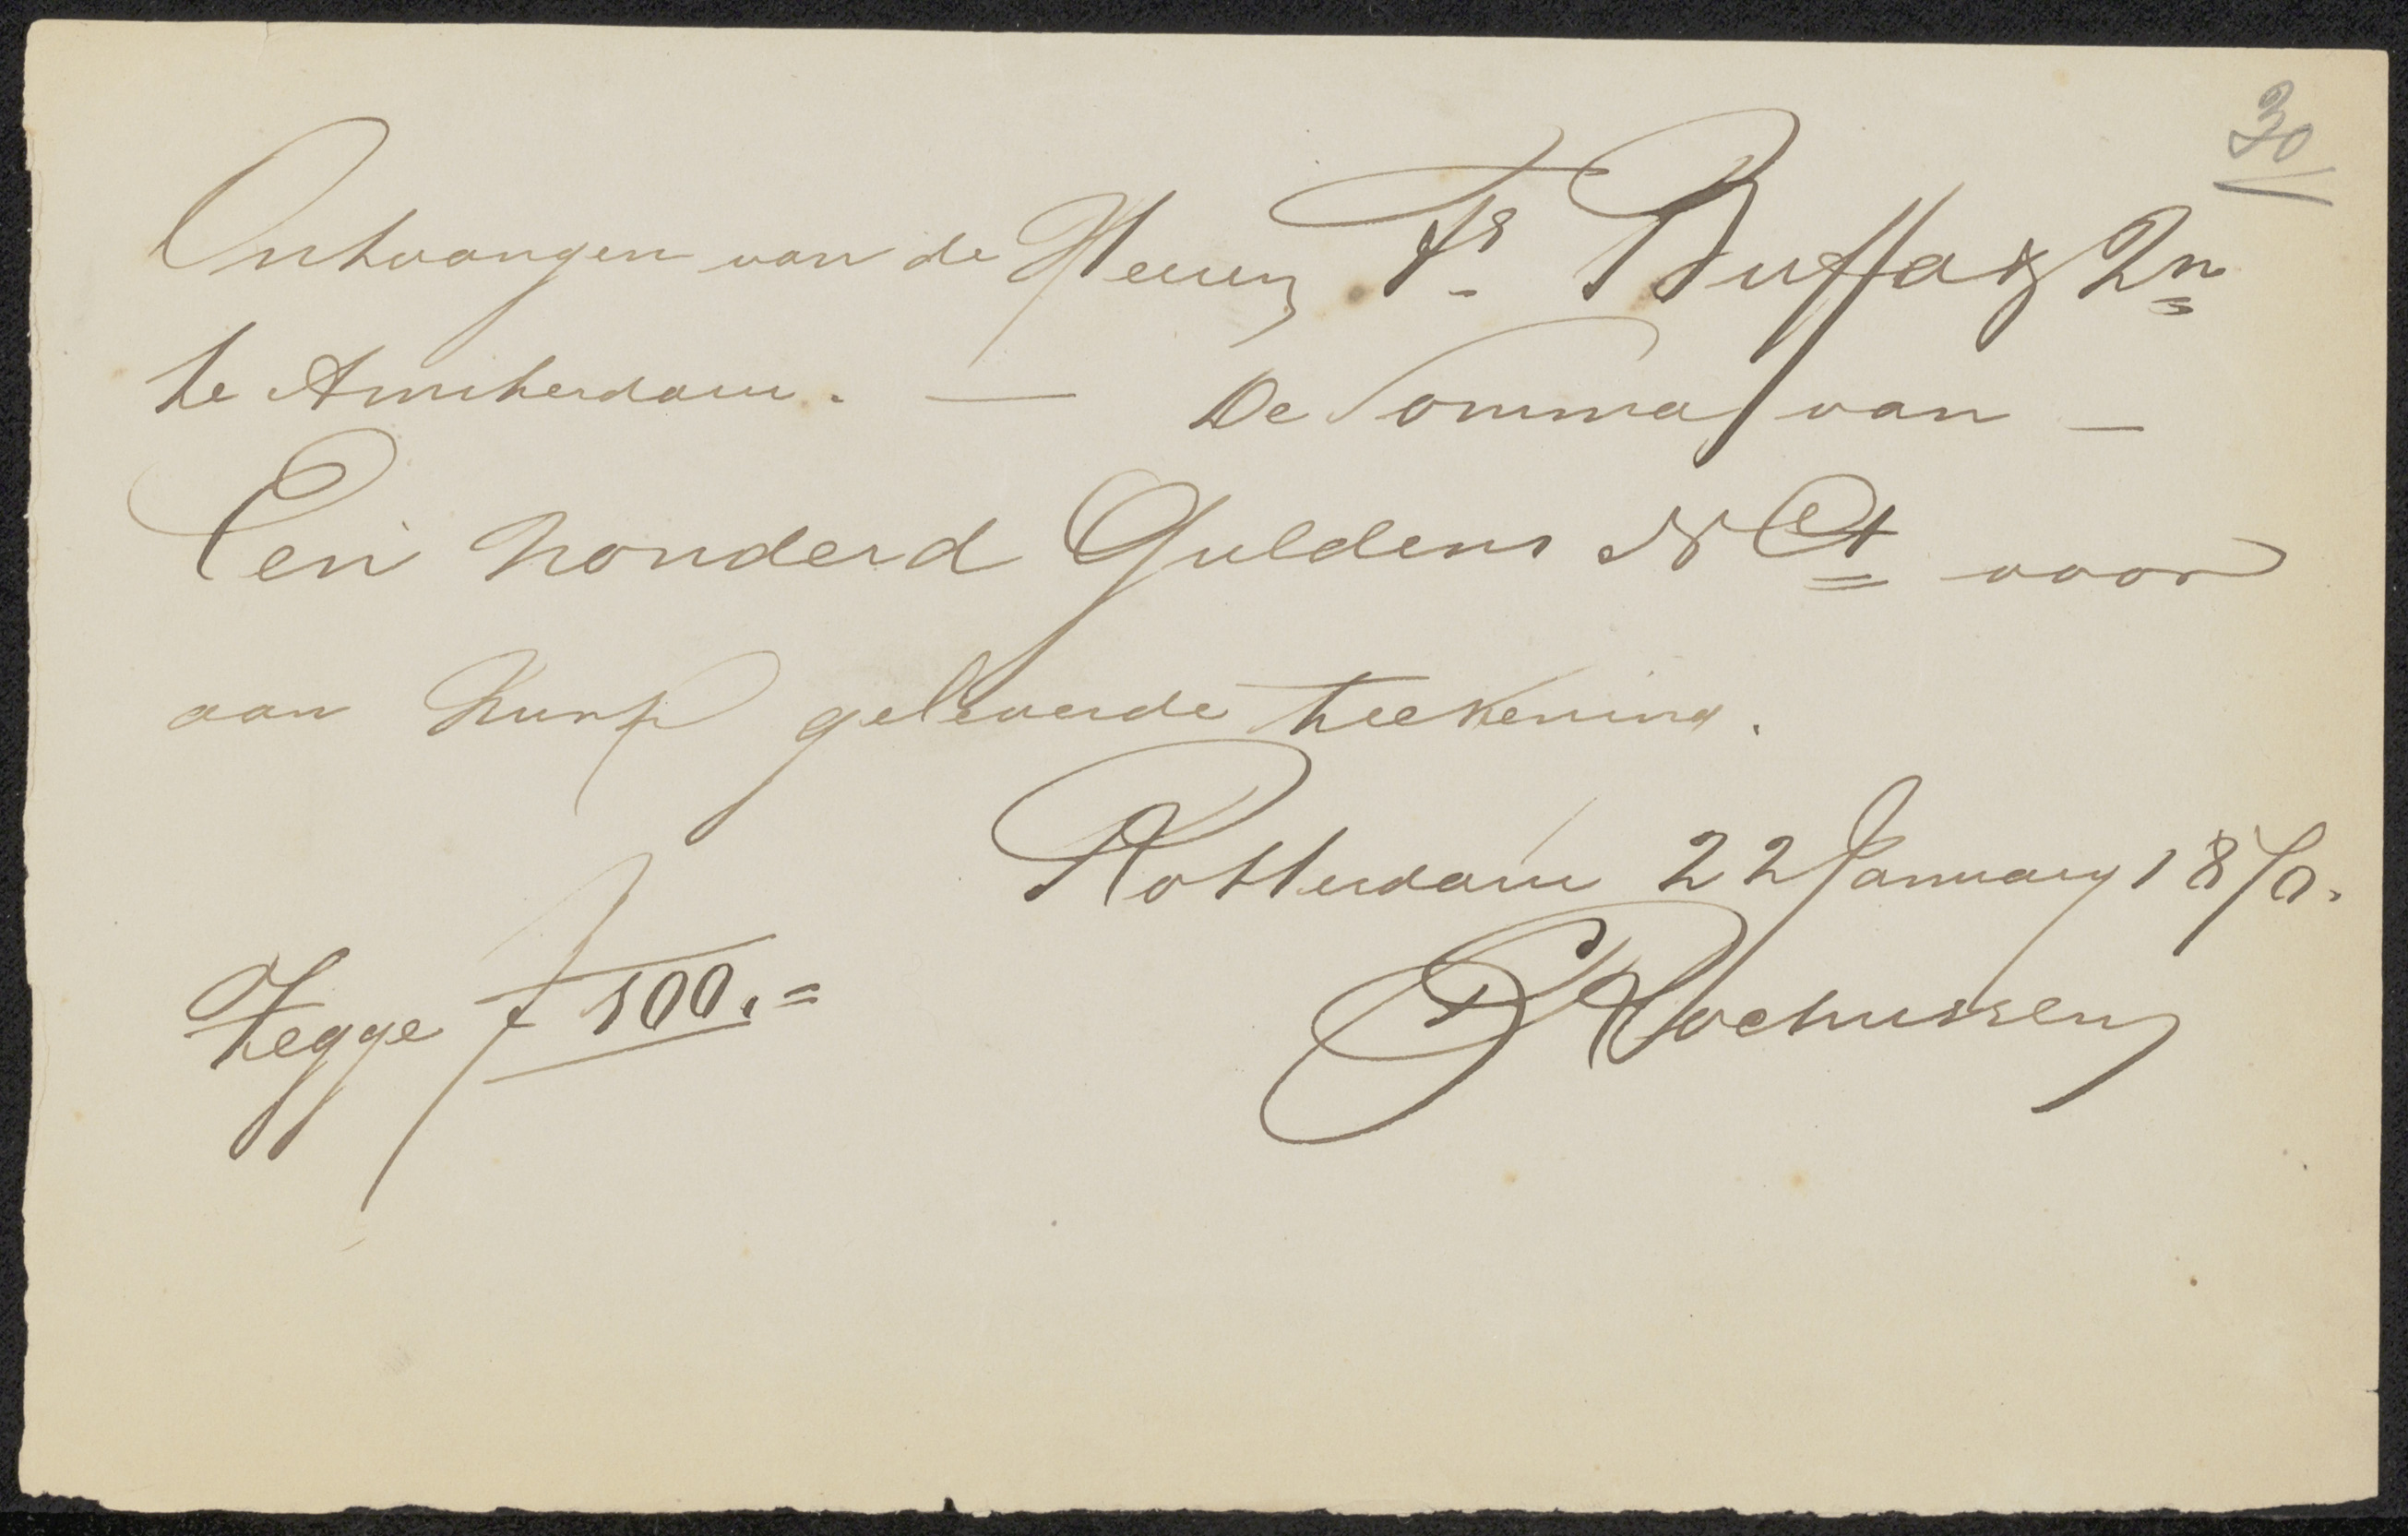 30
Ontvangen van de Heeren Fr Buffa & Zn
te Amsterdam. — De Somma van —
Een honderd Guldens N Ct voor
aan Hun geleverde teekening.
Rotterdam 22 January 1870.
Zegge f 100.=
C Rochussen